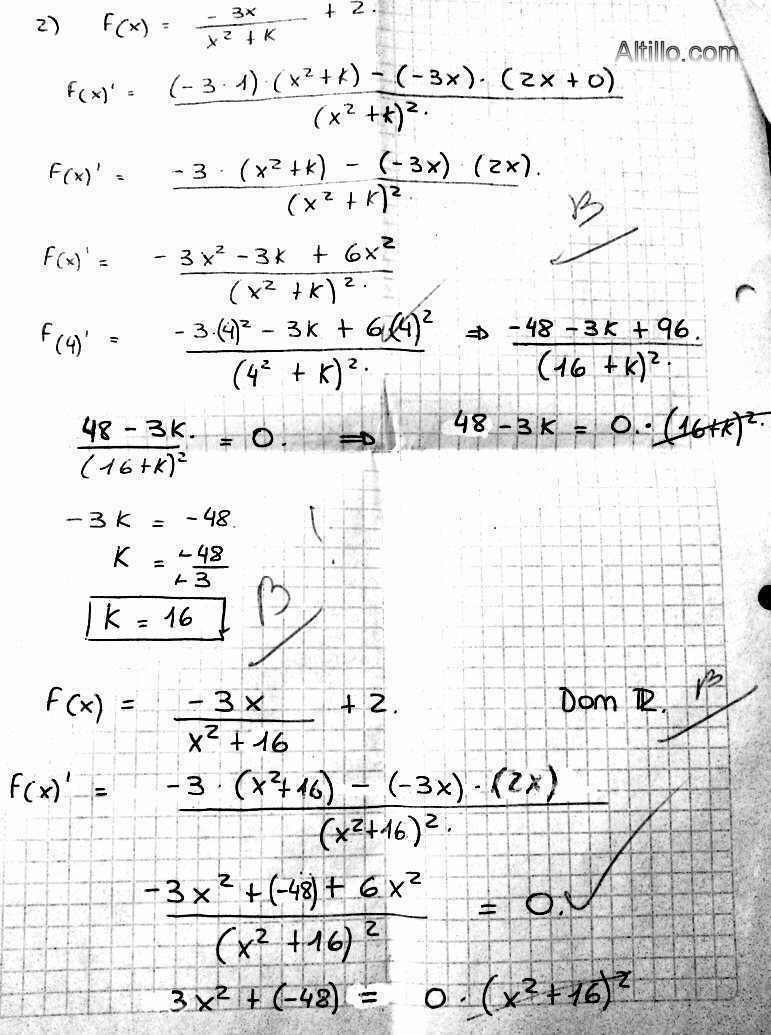 2) F(x) = -3x / x² + K + 2.
Altillo.com
F(x)' = (-3 · 1) · (x² + K) - (-3x) · (2x + 0) / (x² + K)².
F(x)' = -3 · (x² + K) - (-3x) · (2x). / (x² + K)².
B
F(x)' = -3x² - 3K + 6x² / (x² + K)².
F(4)' = -3·(4)² - 3K + 6·(4)² / (4² + K)². ⇒ -48 - 3K + 96. / (16 + K)².
48 - 3K. / (16 + K)² = 0. ⇒ 48 - 3K = 0. · (16+K)².
-3K = -48.
K = -48 / -3
K = 16
B
F(x) = -3x / x² + 16 + 2. Dom ℝ. B
F(x)' = -3 · (x²+16) - (-3x) · (2x) / (x²+16)².
-3x² + (-48) + 6x² / (x² + 16)² = 0.
3x² + (-48) = 0 · (x² + 16)²